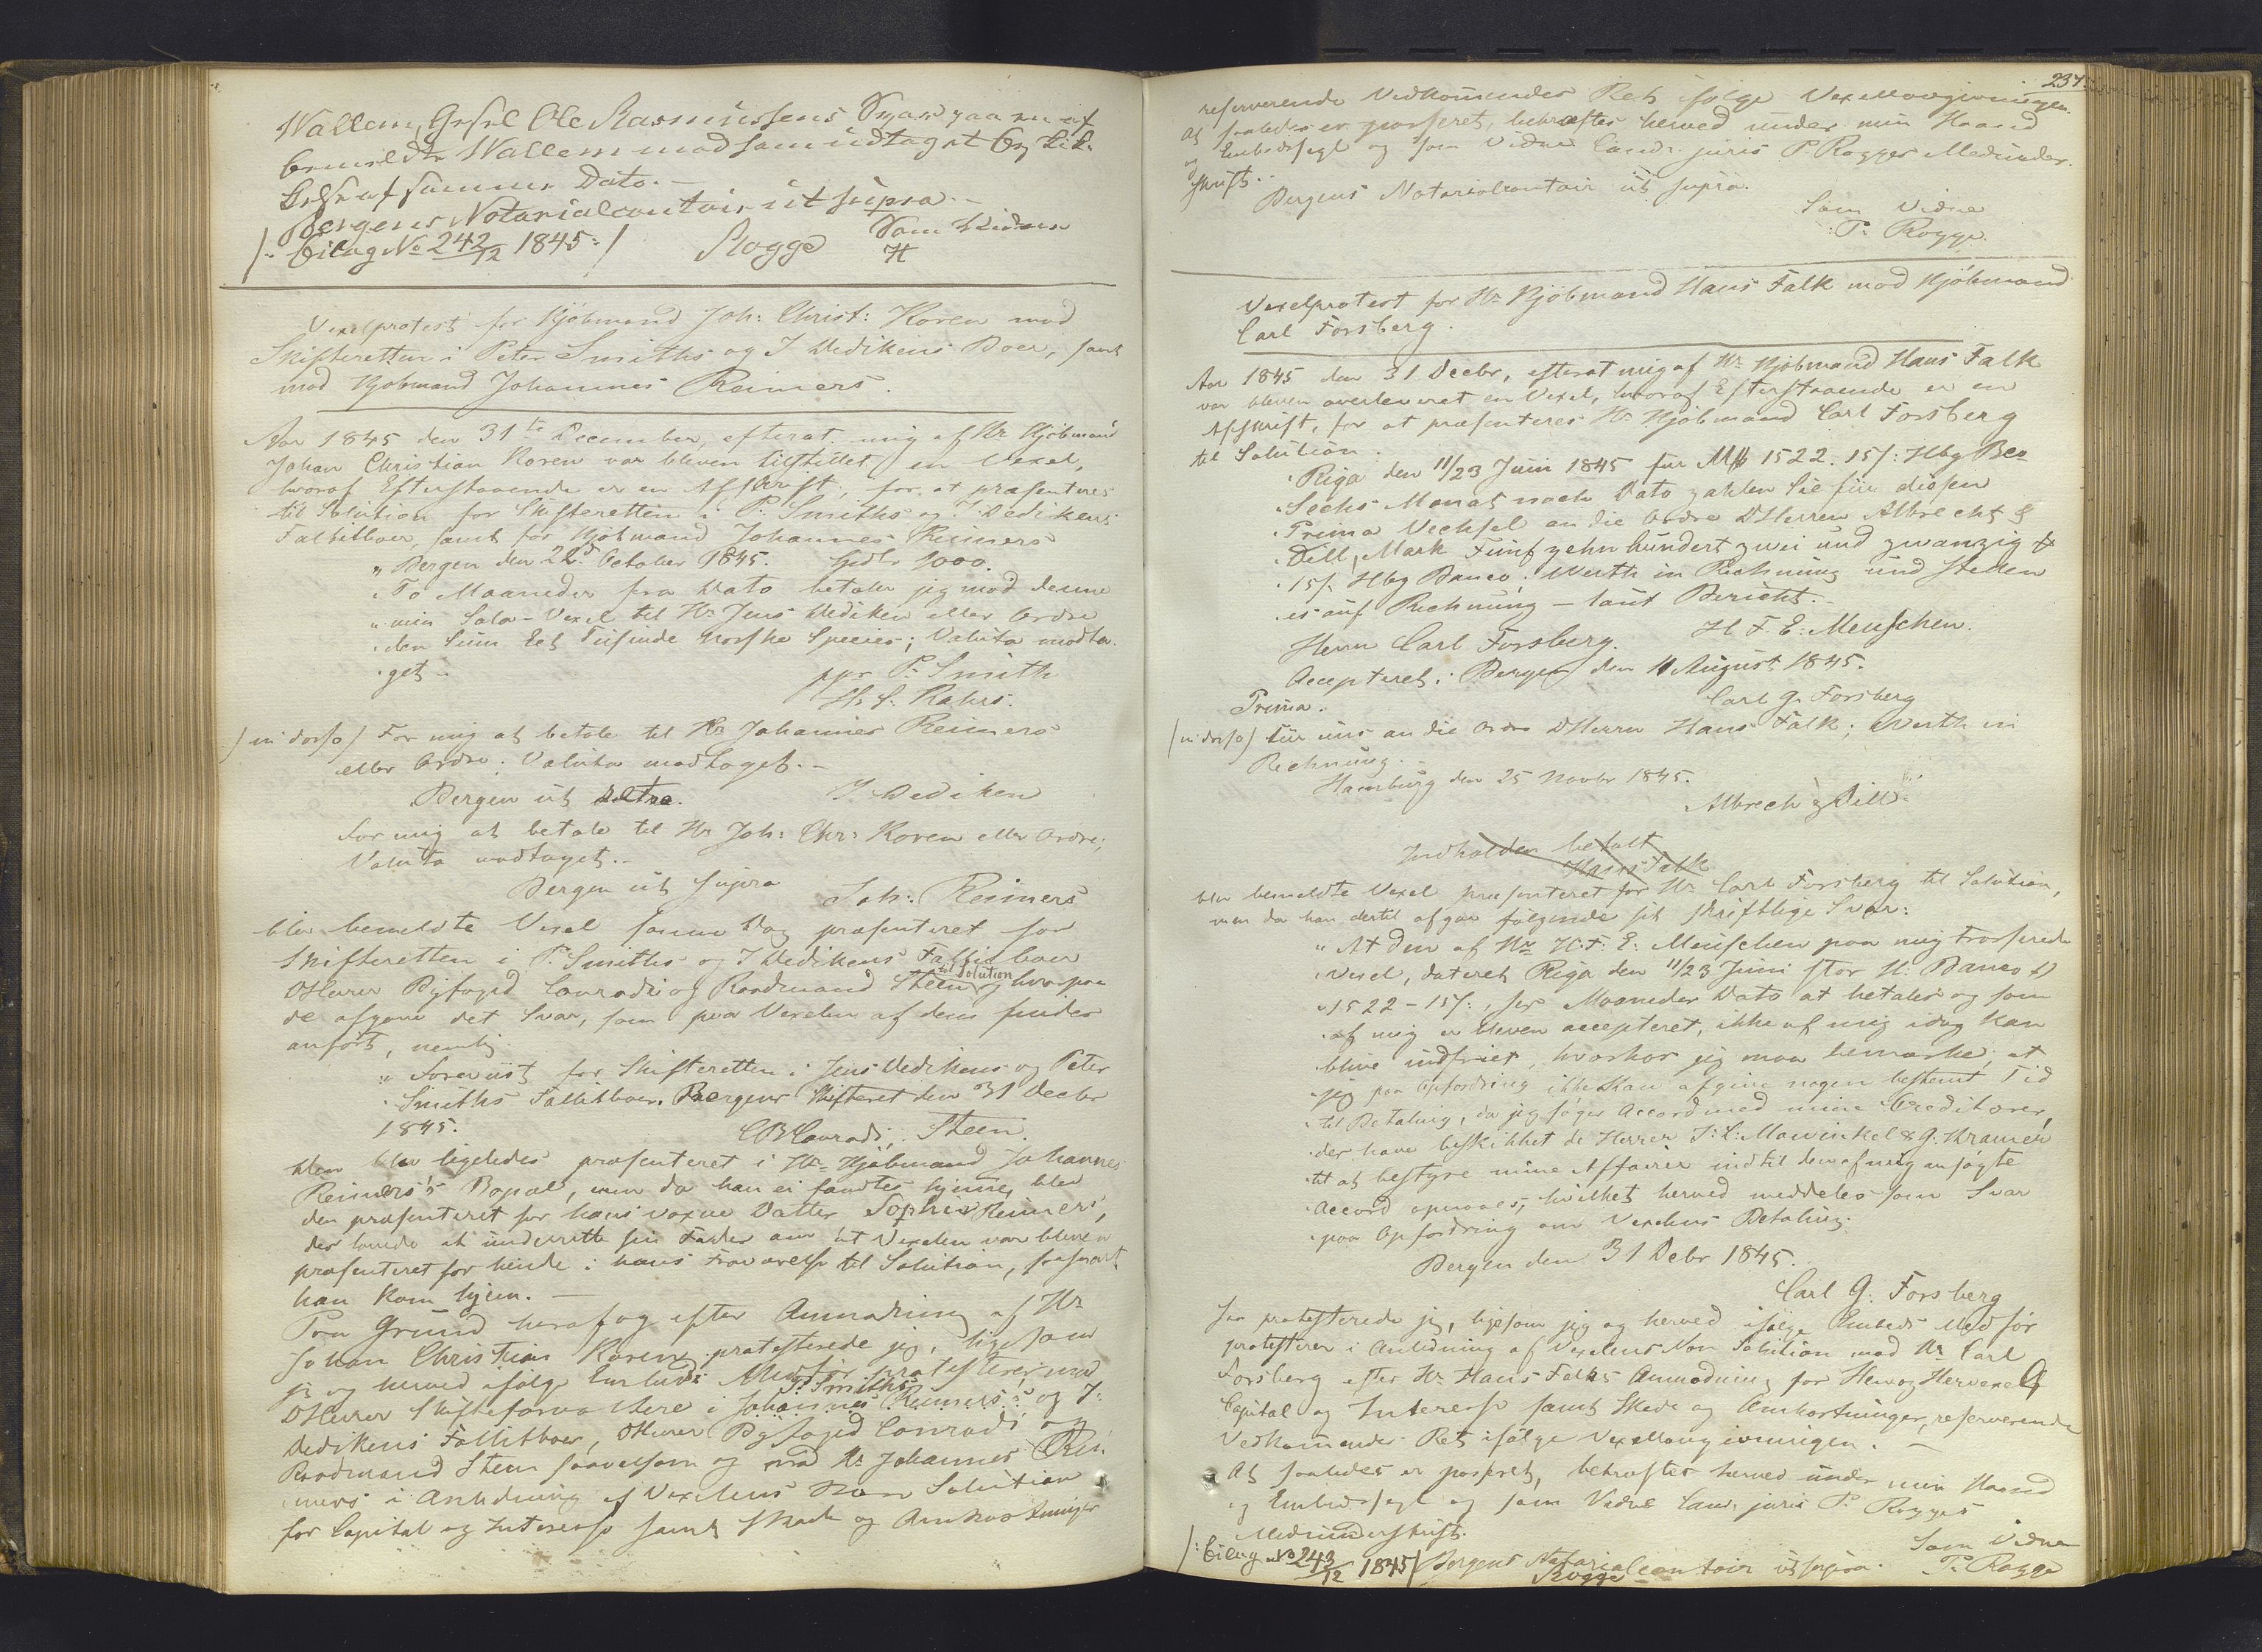 Wallem, Gesel Ole Rasmussens Svar paa en af
bemeldte Wallem mod ham udtaget Og. Lit.
Gesel af samme Dato.-
Bergens Notarialcontoir ut supra.-
/: bilag No 242/12 1845:/ Rogge Som Vidne
H
Vexelprotest for Kjöbmand Joh: Christ: Koren mod
Skifteretten i Peter Smiths og J Dedikens Boer, samt
mod Kjøbmand Johannes Reimers.
Aar 1845 den 31te December, efterat mig af Hr Kjöbmand
Johan Christian Koren var bleven tilstillet en Vexel,
hvoraf Efterstaaende er en Afskrift, for at præsenteres
til Solution for Skifteretten i P: Smiths og J Dedikens
Fallitboer, samt for Kjöbmand Johannes Reimers
" Bergen den 22de October 1845. 1000.
" To Maaneder fra Dato betaler jeg mod denne
" min Sola-Vexel til Hr Jens Dediken eller Ordre
" den Sum Eet Tusinde norske Species; Valuta modta-
" get.-
ppr P: Smith
H: S: Rahrs.
/in dorso/ For mig at betale til Hr Johannes Reimers
eller Ordre; Valuta modtaget.-
Bergen ut retro. J. Dediken
For mig at betale til Hr Joh: Chr: Koren eller Ordre;
Valuta modtaget.-
Bergen ut supra
Joh: Reimers
blev bemeldte Vexel samme Dag præsenteret for
Skifteretten i P: Smiths og J Dedikens Fallitboer
DHerrer Byfoged Conradi og Raadmand Steen til Solution, hvorpaa
de afgave det Svar, som paa Vexelen af dem findes
anført, nemlig:
" Foreviist for Skifteretten i Jens Dedikens og Peter
" Smiths Fallitboer. Bergens Skifteret den 31 Decbr
1845.
CB Conradi, Steen.
Den blev ligeledes præsenteret i Hr Kjøbmand Johannes
Reimers's Bopæl, men da han ei fandtes hjemme, blev
den præsenteret for hans voxne Datter Sophie Reimers,
der lovede at underrette sin Fader om at Vexelen var bleven
præsenteret for hende i hans Fraværelse til Solution, saasnart
han kom hjem.-
Paa Grund heraf og efter Anmodning af Hr
Johan Christian Koren protesterede jeg, ligesom
jeg og herved ifølge Embeds Medfør protesterer mod
DHerrer Skifteforvaltere i P. Smiths Johannes Reimers's og J:
Dedikens Fallitboer, DHerrer Byfoged Conradi og
Raadmand Steen saavelsom og mod Hr Johannes Rei-
mers i Anledning af Vexelens Non Solution
for Capital og Interesse samt Skade og Omkostninger
237.
reserverende Vedkommendes Ret ifølge Vexellovgivningen.
At saaledes er passeret, bekræftes herved under min Haand
og Embedssegl og som Vidne Cand: juris P. Rogges Medunder-
skrift.-
Bergens Notarialcontoir ut supra.
Som Vidne
P. Rogge.
Vexelprotest for Hr Kjöbmand Hans Falk mod Kjöbmand
Carl Forsberg.
Aar 1845 den 31 Decbr, efterat mig af Hr Kjöbmand Hans Falk
var bleven overleveret en Vexel, hvoraf Efterstaaende er en
Afskrift, for at præsenteres Hr Kjøbmand Carl Forsberg
til Solution.
" Riga den 11/23 Juni 1845 für M# 1522. 15/: Hbg Bco
" Sechs Monat nach Dato zahlen Sie für diesen
" Prima Vechsel an die Ordre DHerren Albrecht &
" Dill, Mark Fünfzehn hundert zwei und zwanzig #
" 15/. Hbg Banco. Werth in Rechnung und stellen
" es auf Rechnung - laut Bericht.-
Herrn Carl Forsberg. H. F. E: Menschen.
Accepteret. Bergen den 11 August 1845.
Prima. Carl G. Forsberg
/in dorso/ Für uns an die Ordre DHerrn Hans Falk; Werth in
Rechnung.-
Hamburg den 25 Novbr 1845.
Albrecht & Dill
Indholden betalt
Hans Falk
blev bemeldte Vexel præsenteret for Hr Carl Forsberg til Solution,
men da han dertil afgav følgende sit skriftlige Svar:
" At den af Hr H: F: E. Menschen paa mig trasserede
" Vexel, dateret Riga den 11/23 Juni stor H: Banco #
" 1522 - 15/:, sex Maaneder Dato at betales og som
" af mig er bleven accepteret, ikke af mig idag kan
" blive indfriet, hvorhos jeg maa bemærke, at
" jeg paa Opfordring ikke kan afgive nogen bestemt Tid
" til Betaling, da jeg søger Accord med mine Creditorer,
" der have beskikket de Herrer J: L: Mowinkel & G. Kramer
" til at bestyre mine Affairer indtil den af mig ansøgte
" Accord opnaaes, hvilket herved meddeles som Svar
" paa Opfordring om Vexelens Betaling.
Bergen den 31 Debr 1845.
Carl G. Forsberg
saa protesterede jeg, ligesom jeg og herved ifølge Embeds Medfør
protesterer i Anledning af Vexelens Non Solution mod Hr Carl
Forsberg efter Hr Hans Falks Anmodning for
Capital og Interesse samt Skade og Omkostninger, reserverende
Vedkommendes Ret ifølge Vexellovgivningen.-
At saaledes er passeret, bekræftes herved under min Haand
og Embedssegl og som Vidne Cand. juris P. Rogges
Medunderskrift.
/: bilag No 243/12 1845/ Bergens Notarialcontoir ut supra. Som Vidne
Rogge P. Rogge